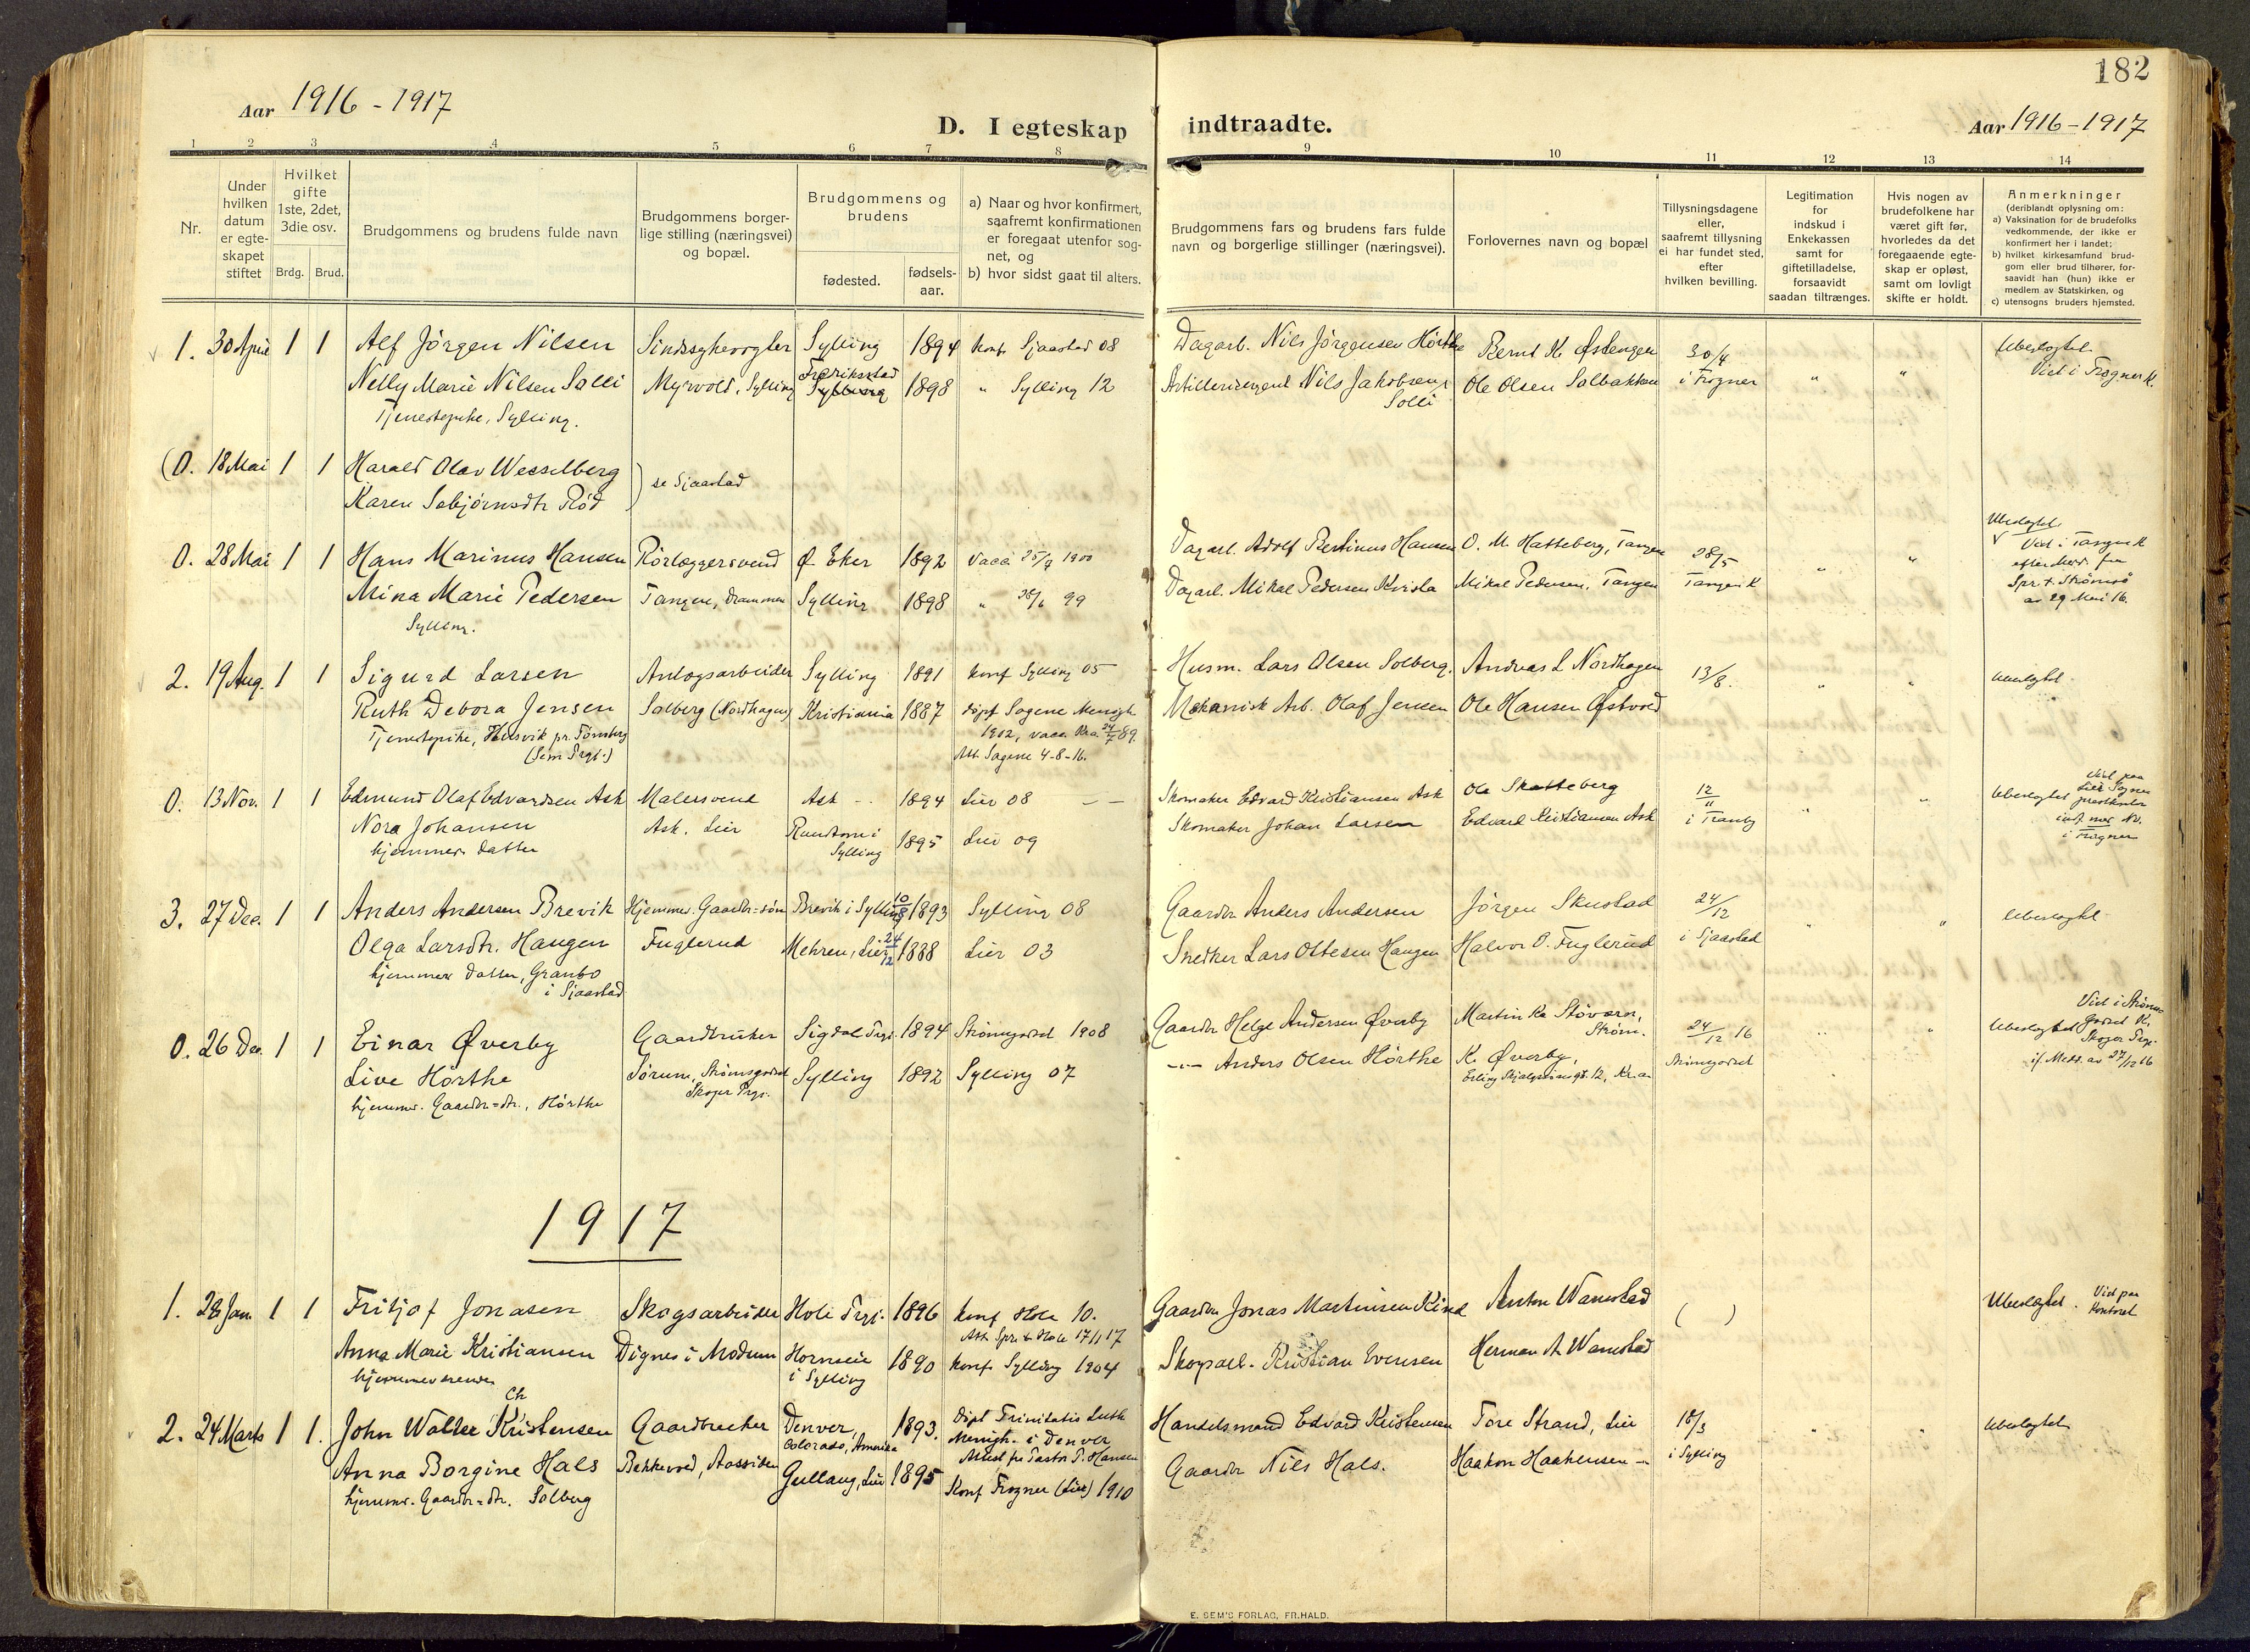 182
Aar 1916-1917
D. I egteskap indtraadte.
Aar 1916-1917
1 2 3 4 5 6 7 8 9 10 11 12 13 14
Nr.
Under hvilken datum er egte-skapet stiftet
Hvilket gifte 1ste, 2det, 3die osv.
Brdg. Brud.
Brudgommens og brudens fulde navn
Brudgommens borger-lige stilling (næringsvei) og bopæl.
Brudgommens og brudens
fødested.
fødsels-aar.
a) Naar og hvor konfirmert, saafremt konfirmationen er foregaat utenfor sog-net, og
b) hvor sidst gaat til alters.
Brudgommens fars og brudens fars fulde navn og borgerlige stillinger (næringsvei).
Forlovernes navn og bopæl
Tillysningsdagene eller, saafremt tillysning ei har fundet sted, efter hvilken bevilling.
Legitimation for indskud i Enkekassen samt for giftetilladelse, forsaavidt saadan tiltrænges.
Hvis nogen av brudefolkene har været gift før, hvorledes da det foregaaende egte-skap er opløst, samt om lovligt skifte er holdt.
Anmerkninger
(deriblandt oplysning om:
a) Vaksination for de brudefolks vedkommende, der ikke er konfirmert her i landet;
b) hvilket kirkesamfund brud-gom eller brud tilhører, for-saavidt han (hun) ikke er medlem av Statskirken, og
c) utensogns bruders hjemsted.
1. 30 April 1 1 Alf Jörgen Nilsen Sindssykevogter Sylling 1894 Konf. Sjaastad 08 Dagarb. Nils Jörgensen Hörthe Bernt K. Østengen 30/4 Ubeslegtet.
Nelly Marie Nilsen Solli Myrvold, Sylling Fredriksstad Sylling 1898 " Sylling 12 Artillerisergent Nils Jakobsen Solli Ole Olsen Solbakken i Frogner " " Viet i Frogner K.
Tjenestepike, Sylling.
(0. 18 Mai 1 1 Harald Olav Wesselberg
Karen Sebjörnsdtr Röd ) se Sjaastad
0. 28 Mai 1 1 Hans Marinus Hansen Rörlæggersvend Ø. Eker 1892 Vacc. 25/9 1900 Dagarb. Adolf Bertinus Hansen O. M. Hatteberg, Tangen 28/5 " " Ubeslegtet
Mina Marie Pedersen Tangen, Drammen Sylling 1898 " 28/6 99 Dagarb. Mikal Pedersen Kvisla Mikal Pedersen, Tangen Tangen K Viet i Tangen K
Sylling. efter Medd. fra
Spr. t. Strömsö
av 29 Mai 16.
2. 19 Aug. 1 1 Sigurd Larsen Anlægsarbeider Sylling 1891 Konf Sylling 05 Husm. Lars Olsen Solberg. Andreas L Nordhagen 13/8. " " Ubeslegtet.
Ruth Debora Jensen Solberg (Nordhagen) Kristiania 1887 döpt Sagene Menigh. Mekanisk Arb. Olaf Jensen Ole Hansen Østvold
Tjenestepike, Husvik pr. Tönsberg 1902, vacc. Kra. 24/7 89.
(Sem Prgj.) Att. Sagene 4-8-16.
0. 13 Nov. 1 1 Edmund Olaf Edvardsen Ask Malersvend Ask 1894 Lier 08 Skomaker Edvard Kristiansen Ask Ole Skatteberg 12/11 " " Ubeslegtet
Nora Johansen Ask. Lier Rundtom i Sylling 1895 Lier 09 Skomaker Johan Larsen Edvard Kristiansen Ask i Tranby
hjemmev. datter
Viet paa Lier Sogneprestkontor
indf. med Nr. i Frogner
3. 27 Dec. 1 1 Anders Andersen Brevik Hjemmev. Gaardbr=sön Brevik i Sylling 10/8 1893 Sylling 08 Gaardbr Anders Andersen Jörgen Skustad 24/12 " " Ubeslegtet
Olga Larsdtr. Haugen Fuglerud Mehren, Lier 24/12 1888 Lier 03 Snedker Lars Ottesen Haugen Halvor O. Fuglerud i Sjaastad
hjemmev. datter, Granbo
i Sjaastad
0. 26 Dec. 1 1 Einar Øverby Gaardbruker Sigdal Prgj. 1894 Strömsgodset 1908 Gaardbr Helge Andersen Øverby Martin Kr. Stövern, Ström. 24/12 16 " " Ubeslegtet
Live Hörthe Sörum, Strömsgodset Sylling 1892 Sylling 07 -"- Anders Olsen Hörthe K. Øverby, Strömsgodset
hjemmev. Gaardbr=dtr., Hörthe Skoger Prgj. Erling Skjalgssönsgt. 12, Kr.a
Viet i Ströms-godset K. Skoger Prgj.
if. Medd. av 27/12 16
1917
1. 28 Jan. 1 1 Fritjof Jonasen Skogsarbeider Hole Prgj. 1896 Konf Hole 10. Gaardbr Jonas Martinsen Kind Anton Wamstad ( ) Ubeslegtet. Viet paa Kontoret
Att. Spr. t. Hole 17/1 17
Anna Marie Kristiansen Dignes i Modum Hornseie i Sylling 1890 Konf Sylling 1904 Skogsarb. Kristian Evensen Herman A. Wamstad
hjemmeværende
2. 24 Marts 1 1. John Walter Kristensen Ch Gaardbruker Denver, Colorado, Amerika 1893. Döpt Trinitatis Luth. Menigh. i Denver Handelsmand Edvard Kristensen Tore Strand, Lier 18/3 " " Ubeslegtet
Attest fr. Pastor P. Hansen
Anna Borgine Hals Bakkevold, Aassiden Gullaug, Lier 1895 Konf Frogner (Lier) 1910 Gaardbr Niels Hals. Haakon Haakensen -"- i Sylling
hjemmev. Gaardbr=dtr. Solberg
E. SEM'S FORLAG, FR.HALD.